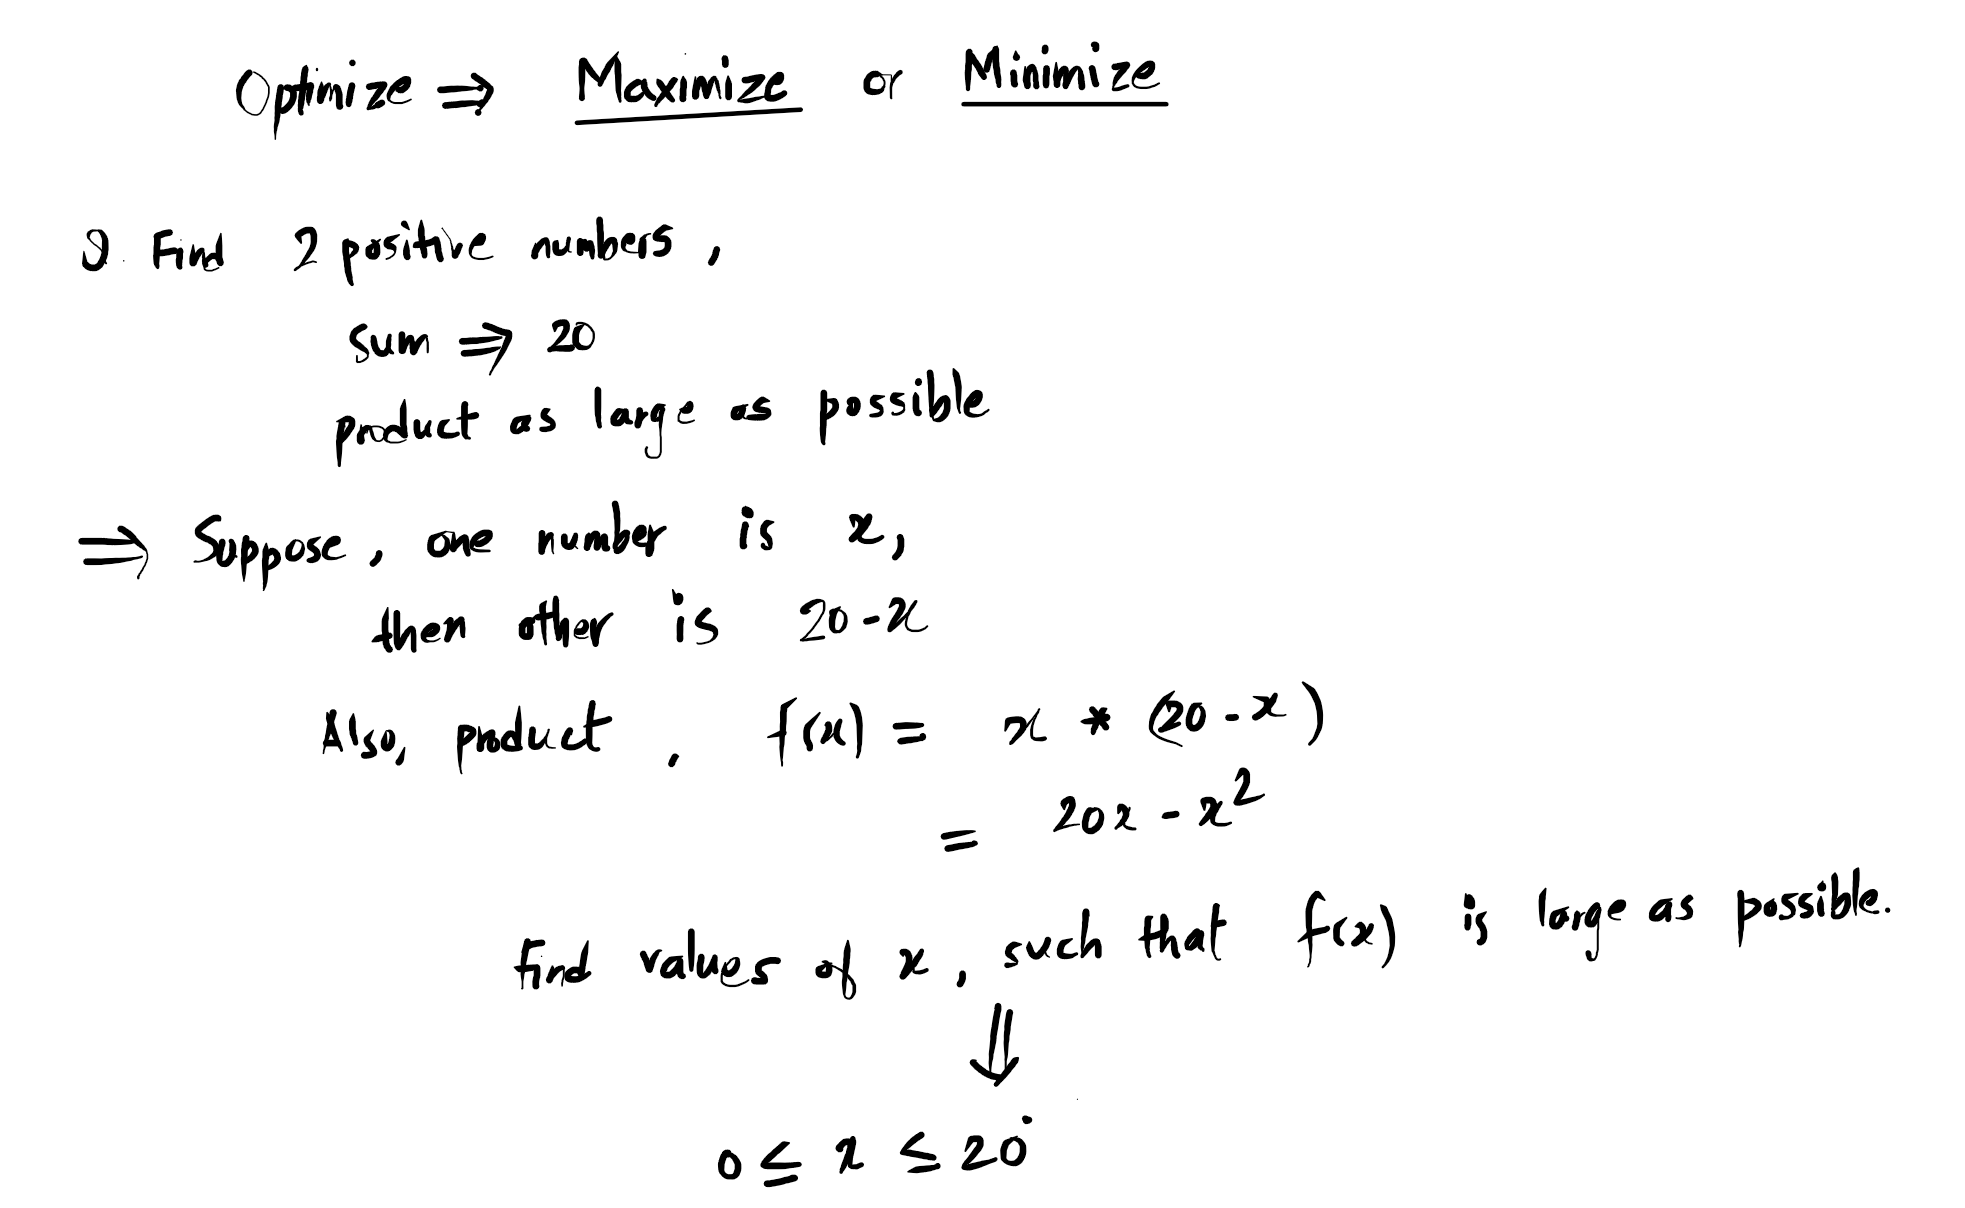 Optimize ⇒ Maximize or Minimize
Q. Find 2 positive numbers,
sum ⇒ 20
product as large as possible
⇒ Suppose, one number is x,
then other is 20-x
Also, product, f(x) = x * (20-x)
= 20x - x²
find values of x, such that f(x) is large as possible.
⇓
0 ≤ x ≤ 20